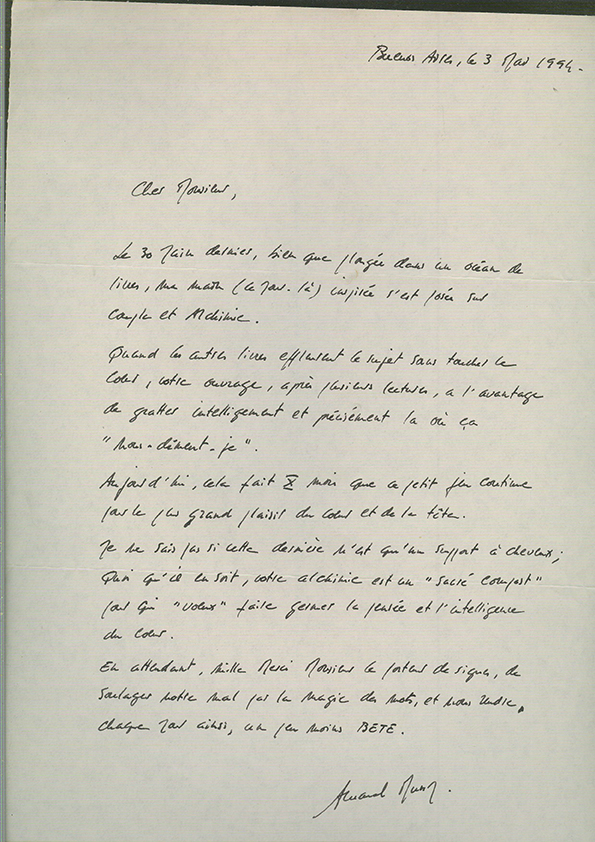 Buenos Aires, le 3 Mai 1994.
Cher Monsieur,
Le 30 Juin dernier, bien que plongée dans un océan de
livres, ma main (ce jour-là) inspirée s'est posée sur
Couple et Alchimie.
Quand les autres livres effleurent le sujet sans toucher le
Coeur, votre ouvrage, après plusieurs lectures, a l'avantage
de gratter intelligement et précisément la où ça
"nous-dément-je".
Aujourd'hui, cela fait X mois que ce petit jeu continue
pour le plus grand plaisir du Coeur et de la tête.
Je ne sais pas si cette dernière n'est qu'un support à cheveux;
Quoi qu'il en soit, votre alchimie est un "sacré compost"
pour qui "voeux" faire germer la pensée et l'intelligence
du Coeur.
En attendant, mille Merci Monsieur le porteur de signes, de
soulager notre mal par la magie des mots, et nous rendre,
chaque jour ainsi, un peu moins BETE.